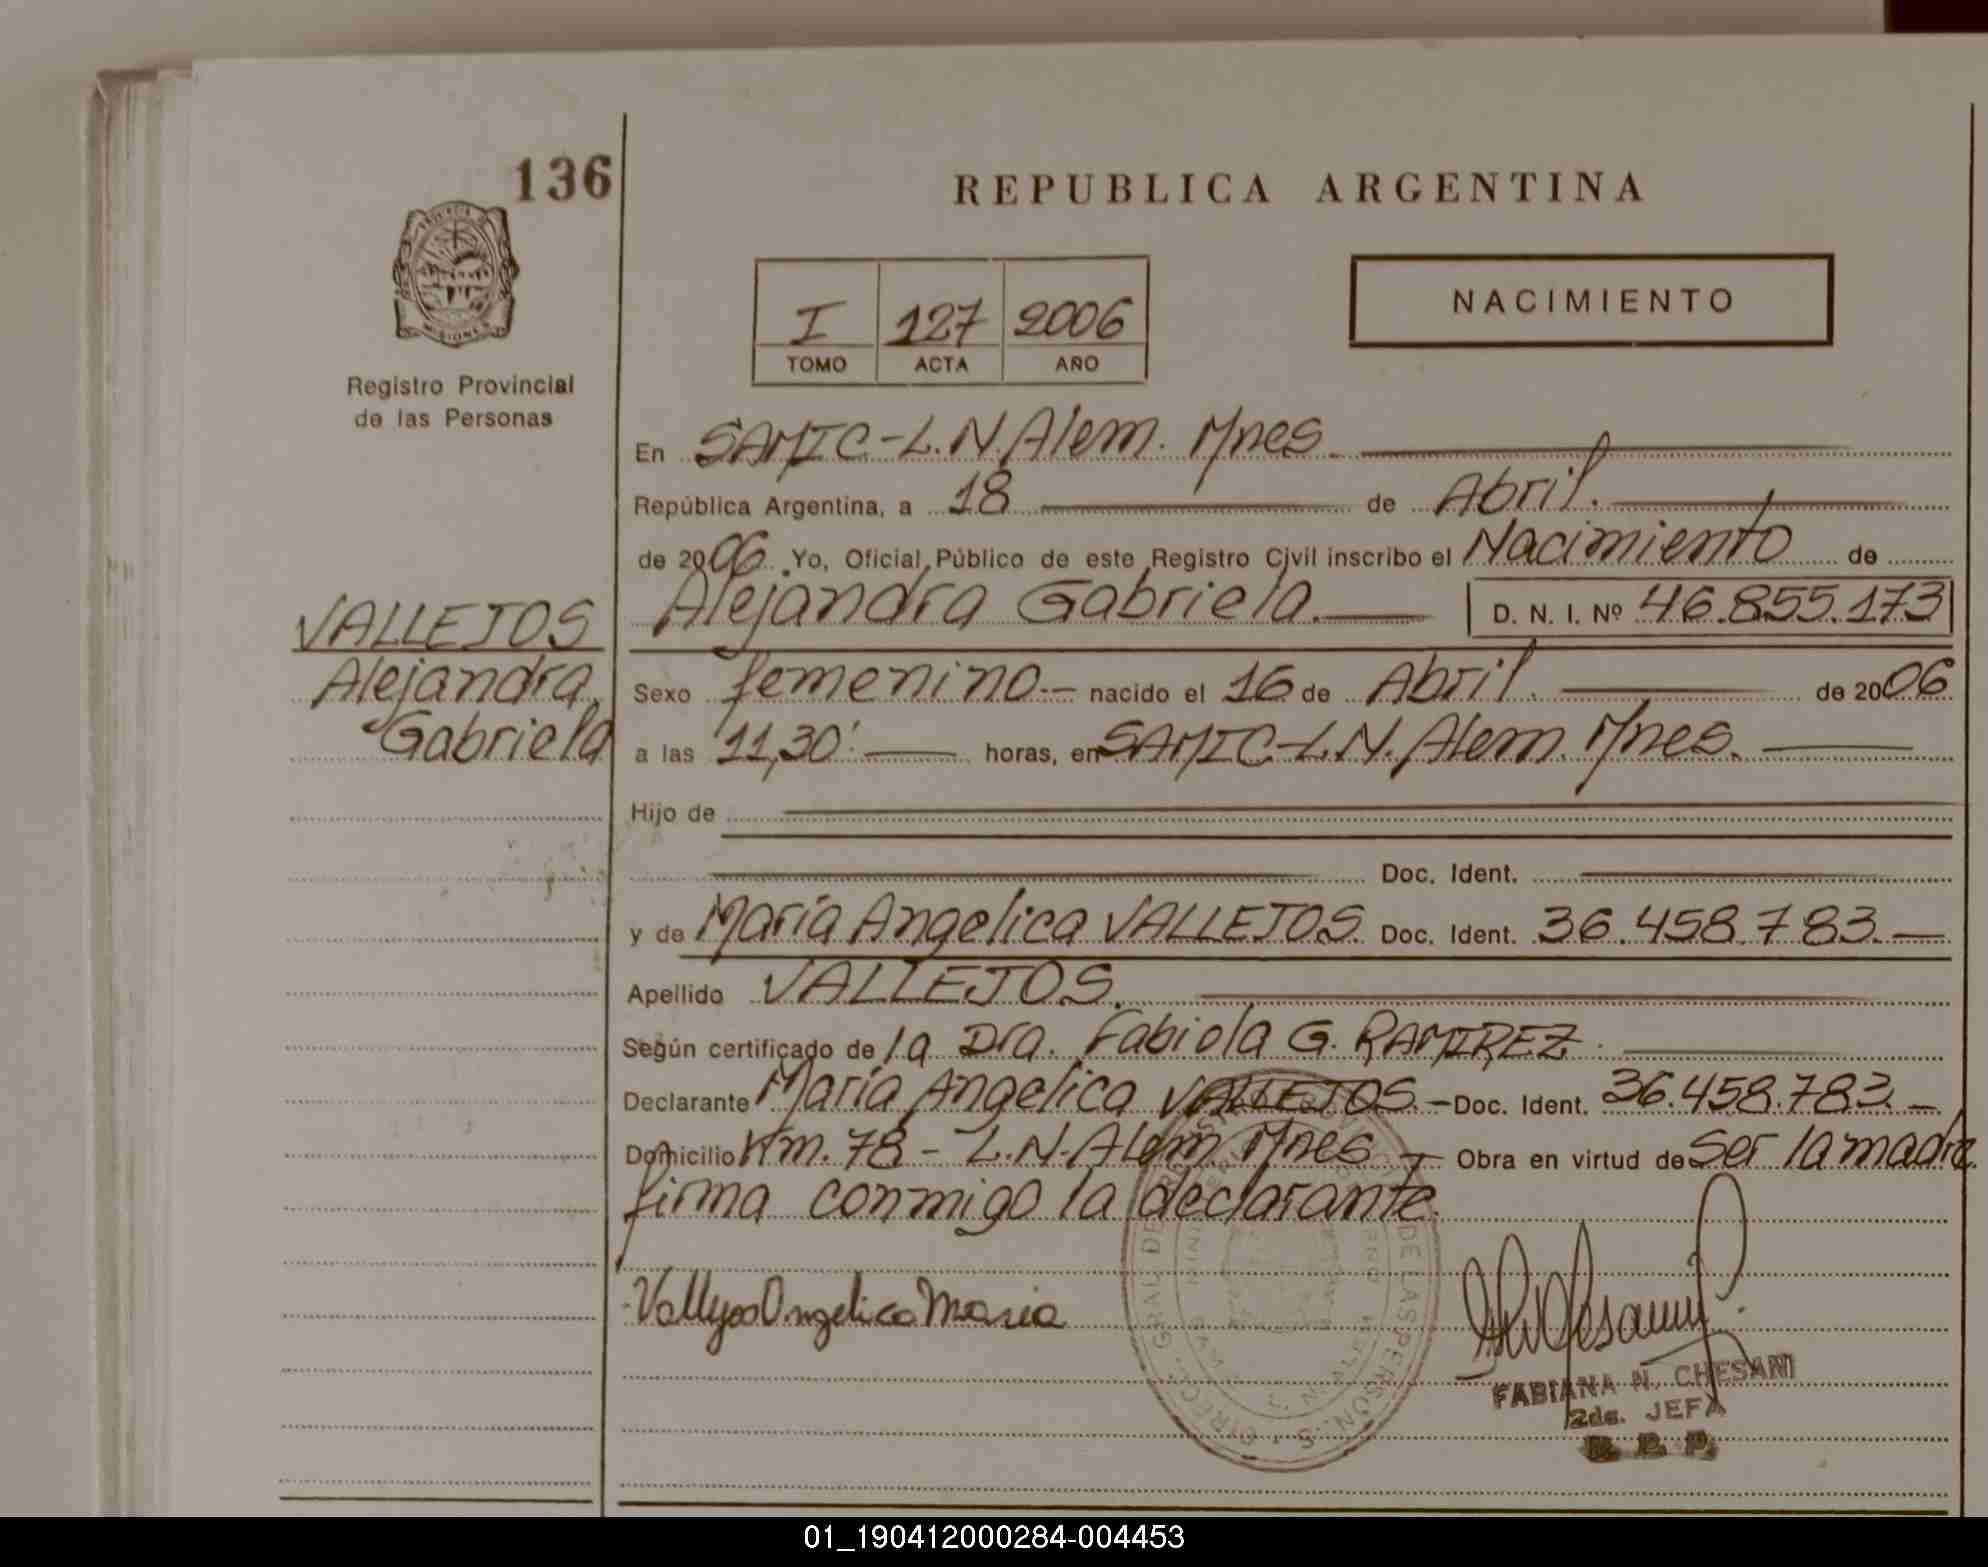 136
REPUBLICA ARGENTINA
MISIONES
I 127 2006
TOMO ACTA AÑO
NACIMIENTO
Registro Provincial
de las Personas
En SAMIC-L.N.Alem. Mnes.
República Argentina, a 18 de Abril.
de 2006. Yo, Oficial Público de este Registro Civil inscribo el Nacimiento de
Alejandra Gabriela. D. N. I. Nº 46.855.173
VALLEJOS
Alejandra
Gabriela
Sexo femenino.- nacido el 16 de Abril. de 2006
a las 11,30'. horas, en SAMIC-L.N. Alem. Mnes.
Hijo de
Doc. Ident.
y de María Angelica VALLEJOS. Doc. Ident. 36.458.783.-
Apellido VALLEJOS.
Según certificado de la Dra. Fabiola G. RAMIREZ.
Declarante María Angelica VALLEJOS.- Doc. Ident. 36.458.783.-
Domicilio Km. 78 - L.N.Alem Mnes - Obra en virtud de Ser la madre
firma conmigo la declarante.
Vallejos Angelica Maria
FABIANA N. CHESANI
2da. JEFA
R. P. P.
01_190412000284-004453